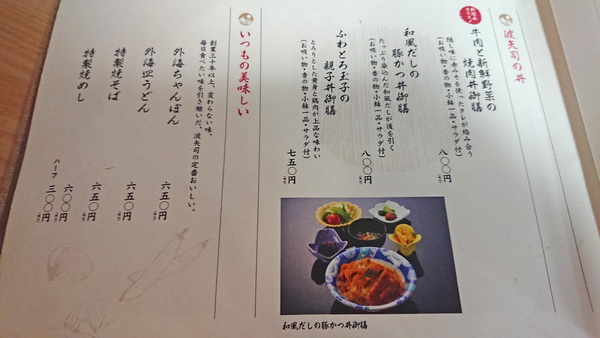 波矢司の丼
牛肉と新鮮野菜の
焼肉丼御膳
隠し味に赤みそを使ったタレが絡み合う
(お吸い物・香の物・小鉢一品・サラダ付)
八〇〇円
和風だしの
豚かつ丼御膳
たっぷり染込んだ和風だしが後を引く
(お吸い物・香の物・小鉢一品・サラダ付)
八〇〇円
ふわとろ玉子の
親子丼御膳
とろりとした黄身と鶏肉が上品な味わい
(お吸い物・香の物・小鉢一品・サラダ付)
七五〇円
和風だしの豚かつ丼御膳
いつもの美味しい
創業三十年以上、変わらない味。
毎日食べたい味を引き継いだ、波矢司の定番おいしい。
外海ちゃんぽん
六五〇円
外海皿うどん
六五〇円
特製焼そば
六五〇円
特製焼めし
六〇〇円
ハーフ 三〇〇円